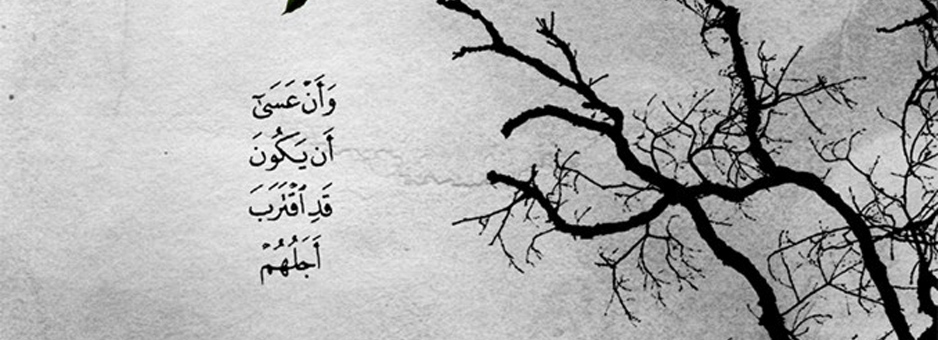 وَأَنْ عَسَىٰٓ
أَن يَكُونَ
قَدِ ٱقْتَرَبَ
أَجَلُهُمْ